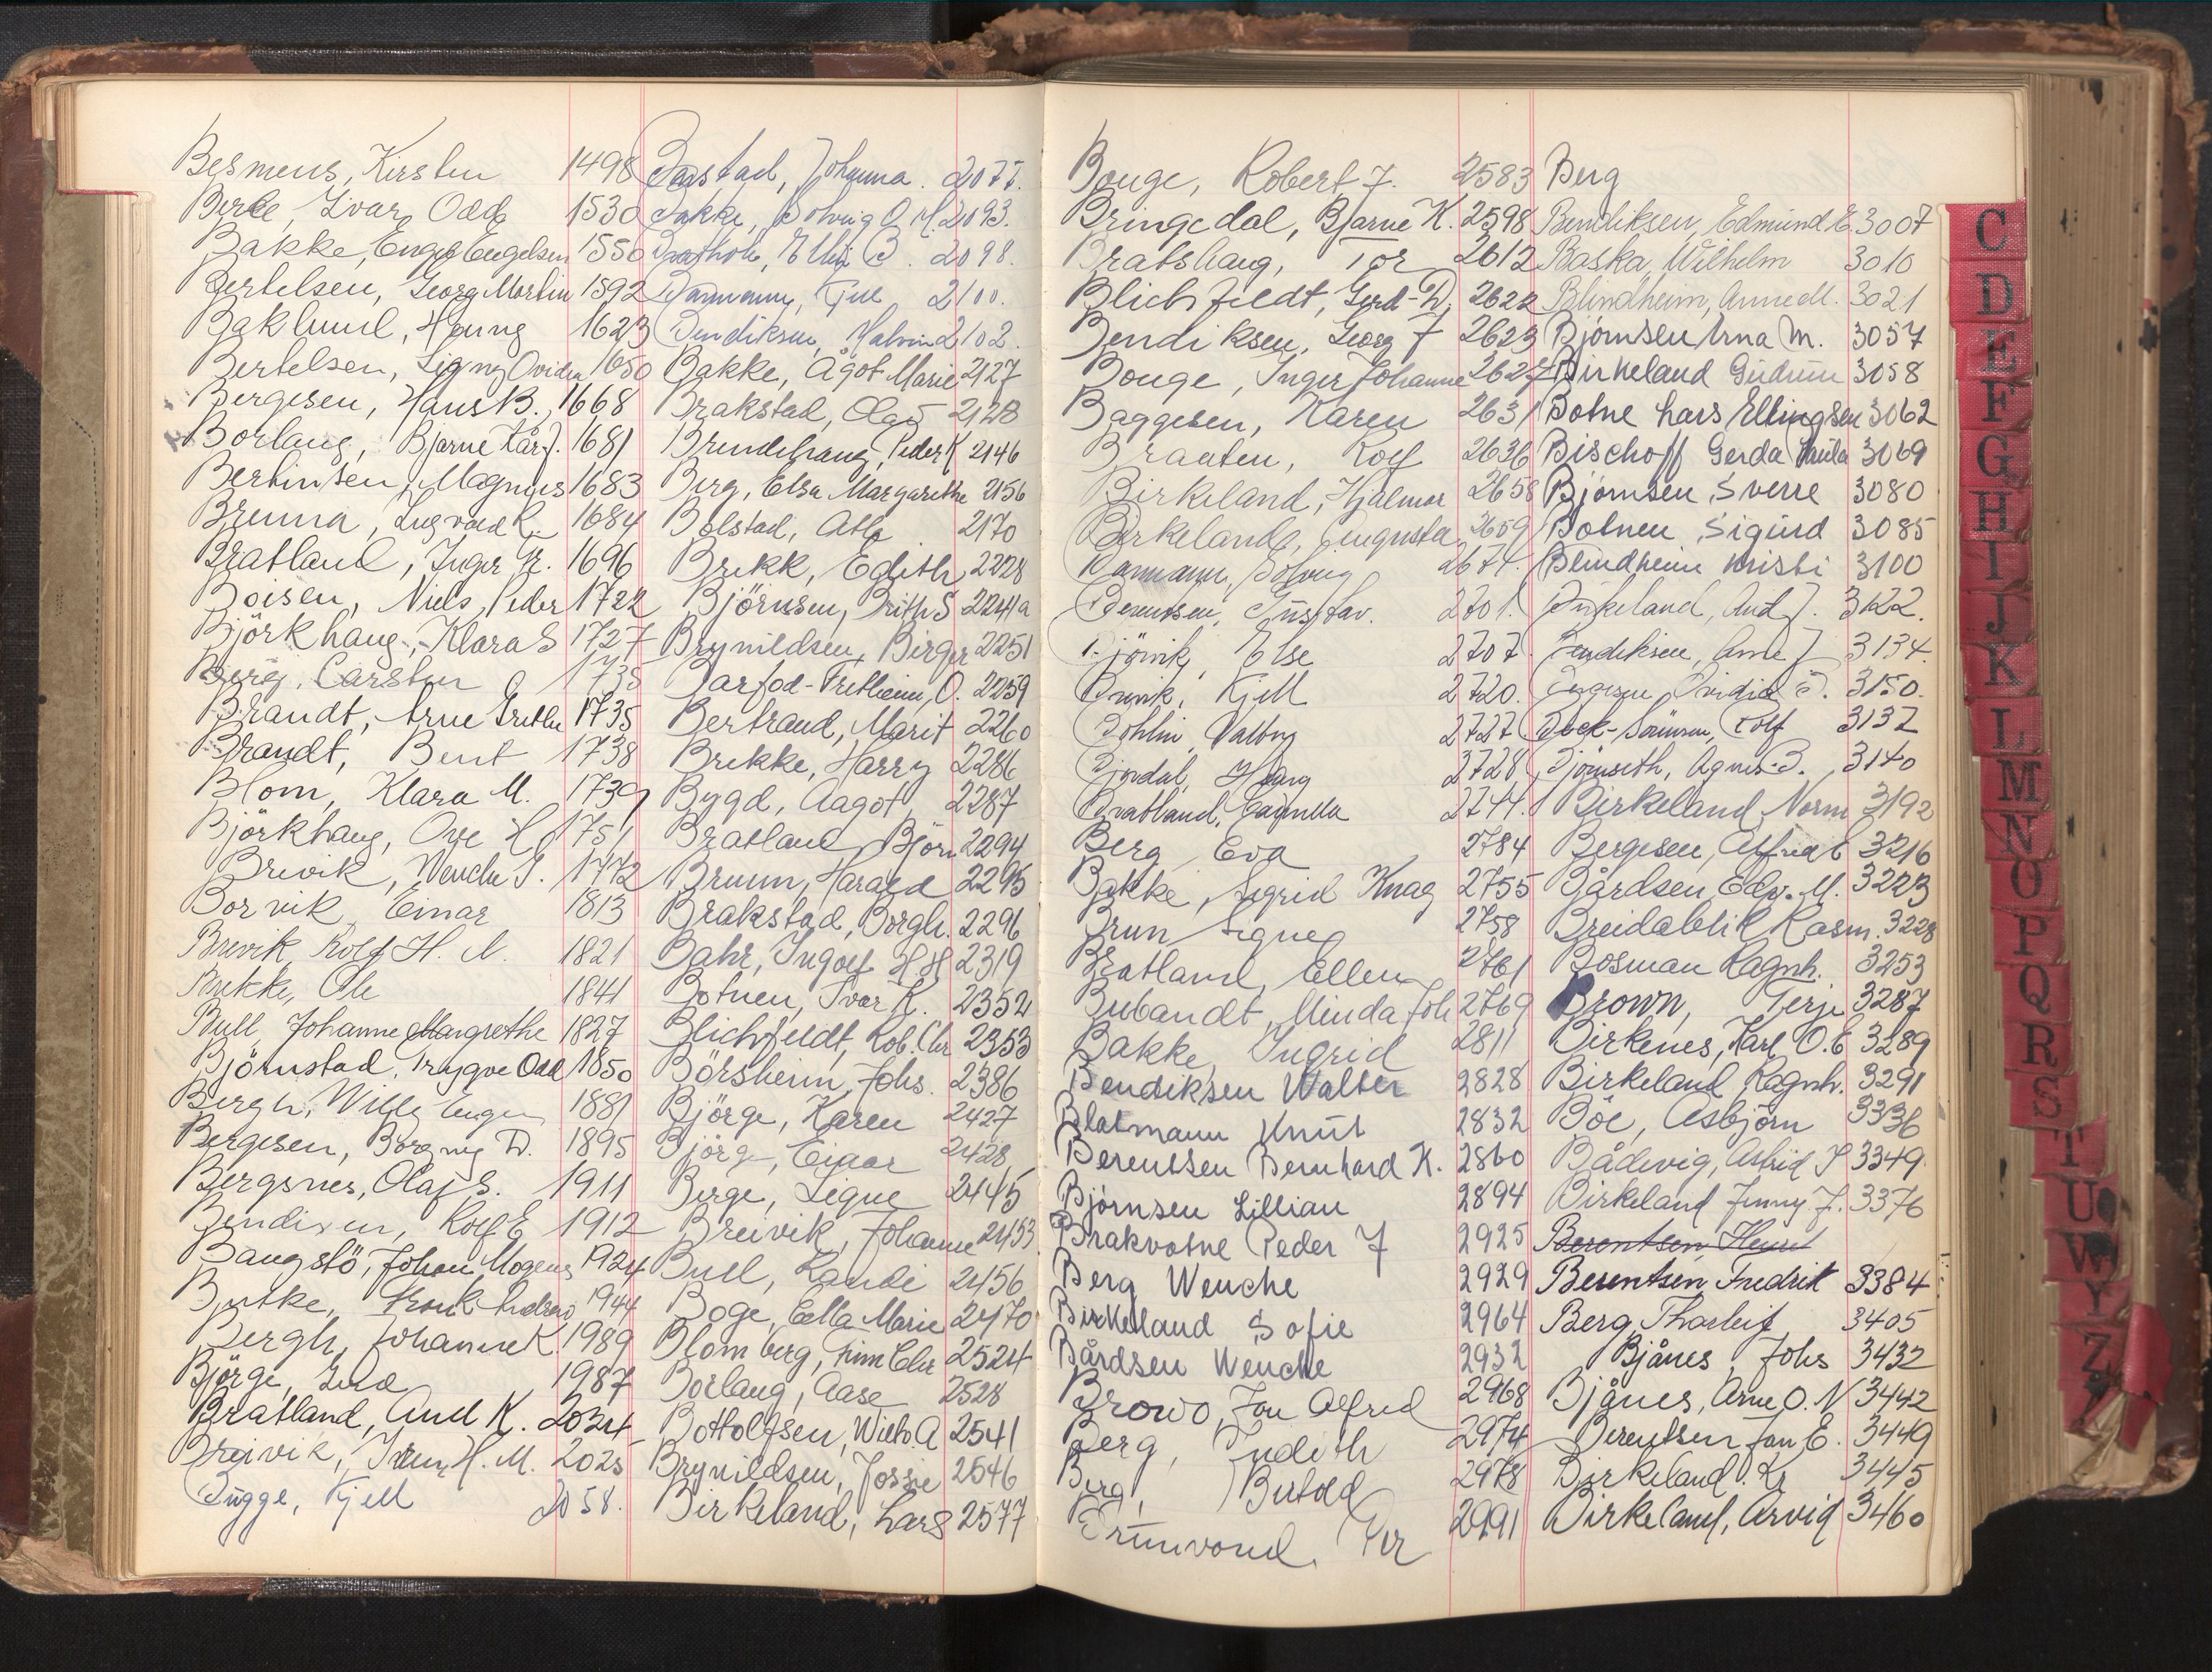 Besmens, Kirsten 1498
Berle, Ivar Odd 1530
Bakke, Engel Engelsen 1550
Bertelsen, Georg Martin 1592
Baklund, Henny 1623
Bertelsen, Signy Ovidia 1650
Bergesen, Hans B. 1668
Borlaug, Bjarne Kår J. 1681
Bertinsen, Magnus 1683
Brenna, Ingvald R. 1684
Bratland, Inger K. 1696
Boisen, Niels Peder 1722
Björkhaug, Klara S 1727
Berg, Carsten 1735
Brandt, Arne Grethe 1735
Brandt, Bent 1738
Blom, Klara M. 1739
Björkhaug, Ove H 1751
Brevik, Wenche S. 1772
Borvik, Einar 1813
Brevik, Rolf H. N. 1821
Brekke, Ole 1841
Bull, Johanne Margrethe 1827
Björnstad, Trygve Odd 1850
Bergh, Willy Eugen 1881
Bergesen, Borgny D. 1895
Bergsnes, Olaf S. 1911
Bendixen, Rolf E 1912
Baugstö, Johan Mogens 1924
Bjotke, 1944
Bergh, Johanne K. 1989
Björge, 1987
Bratland, Aud K. 2034
Breivik, H. M. 2025
Bugge, Kjell 2058.
Baastad, Johanna. 2077.
Bakke, Solveig O. M. 2093.
Elly B. 2098.
Barmann, 2100.
Bendiksen, Halvin 2102.
Bakke, Ågot Marie 2127
Brakstad, Olav 2128
Brundehaug, Peder K 2146
Berg, Elsa Margarethe 2156
Bolstad, Atle 2170
Brekk, Edith 2228
Björnsen, Brith S 2244a
Brynildsen, Birger 2251
Barfod-Fretheim, O. 2259
Bertrand, Marit 2260
Brekke, Harry 2286
Bygd, Aagot 2287
Bratland Björn 2294
Bruun, Harald 2295
Brakstad, Borgh. 2296
Bahr, Ingolf H H 2319
Botnen, Ivar K. 2352
Blichfeldt, Rob. Chr 2353
Börsheim, Johs. 2386
Björge, Karen 2427
Björge, Einar 2428
Berge, Signe 2445
Breivik, Johanne 2453
Bull, Randi 2456
Boge, Ella Marie 2470
Blomberg, Finn Chr 2524
Borlaug, Aase 2528
Bottolfsen, Wilh. A 2541
Brynildsen, Jossie 2546
Birkeland, Lars 2577
Bouge, Robert J. 2583
Bringedal, Bjarne K. 2598
Bratshaug, Tor 2612
Blichfeldt, Gerd-D. 2622
Bendiksen, Georg J 2623
Bouge, Inger Johanne 2627
Baggesen, Karen 2631
Braaten, Rolf 2636
Birkeland, Hjalmar 2658
Birkeland, Augusta 2659
Barmann, Solveig 2674.
Berentsen, Gustav. 2701.
Bjönvik, Else 2707.
Brevik, Kjell 2720.
Bohlin Valborg 2727
2728
Bratland, Gunilla 2744.
Berg Eva 2784
Bakke, Sigrid Knag 2755
Brun Signe 2758
Bratland, Ellen 2761
Bubandt, Minda Joh 2769
Bakke, Ingrid 2811
Bendiksen Walter 2828
Blatmann Knut 2832
Berentsen Bernhard K. 2860
Björnsen Lillian 2894
Brakvatne Peder J 2925
Berg Wenche 2929
Birkeland Sofie 2964
Bårdsen Wenche 2932
Browo, Jan Alfred 2968
Berg, Judith 2974
Berg, 2978
Brunvoud, Per 2991
Berg
Bendiksen, Edmund E. 3007
Baska, Wilhelm 3010
Blindheim, Anne M. 3021
Bjørnsen Arna M. 3057
Birkeland Gudrun 3058
Botne Lars Ellingsen 3062
Bischoff Gerda Paula 3069
Bjørnsen, Sverre 3080
Botnen, Sigurd 3085
Blindheim Kristi 3100
Birkeland, Aud J. 3122.
Bendiksen, Arne J. 3134.
Ovidia 3150.
Bock-Sörensen, Rolf 3137
Björnseth, Agnes B. 3140
Birkeland, Norm 3192
Bergesen, Alfred E 3216
Bårdsen, Edv. M. 3223
Breidablik Rasm. 3228
Bosman Ragnh. 3253
Brown, Terje 3287
Birkenes, Karl O. E 3289
Birkeland Ragnh. 3291
Böe, Asbjørn 3336
Bådsvig, Astrid S 3349
Birkeland Jenny J. 3376
Berentsen, Henrit
Berentsen, Fredrik 3384
Berg, Thorleif 3405
Bjånes, Johs 3432
Bjånes, Arne O. N 3442
Berentsen Jan E. 3449
Birkeland, Kr 3445
Birkeland, Arvid 3460
C
D
E
F
G
H
I
J
K
L
M
N
O
P
Q
R
S
T
U
W
Y
Z